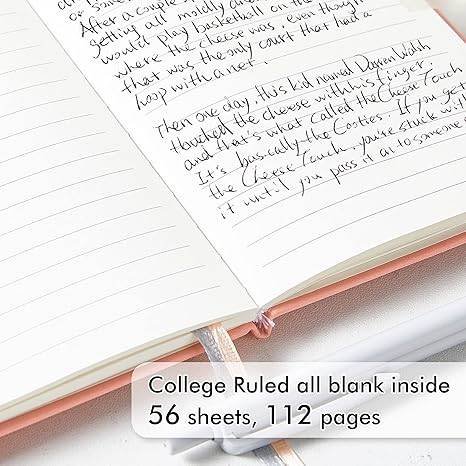 or some
After a couple
getting all moldy and
would play basketball on the
where the cheese was, even though
that was the only court that had a
hoop with a net.
Then one day, this kid named Darren Walsh
touched the cheese with his finger,
and that's what called the Cheese Touch
It's basically the Cooties. If you get
the Cheese Touch, you're stuck with
it until you pass it on to someone
College Ruled all blank inside
56 sheets, 112 pages